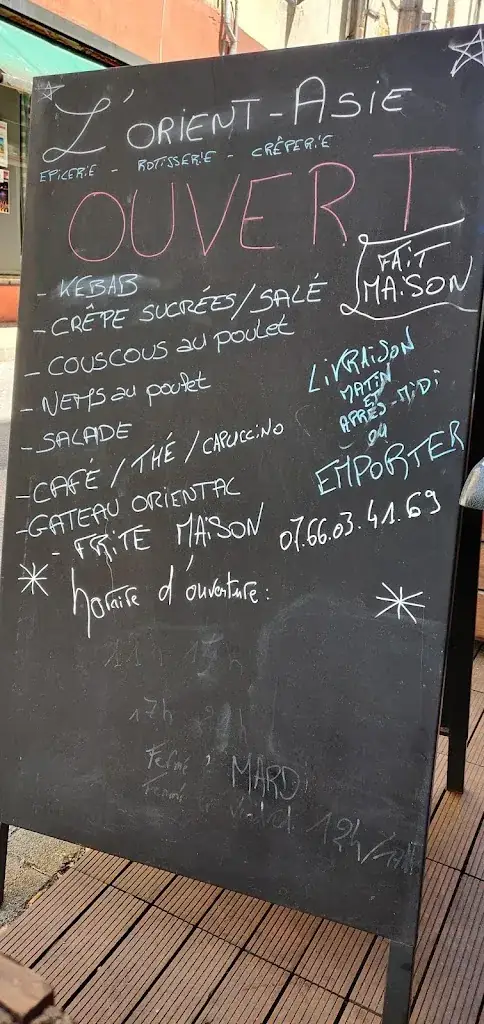 L'ORIENT-ASIE
EPICERIE - ROTISSERIE - CRÊPERIE
OUVERT
FAIT
MAISON
- KEBAB
- CRÊPE SUCRÉES/SALÉ
- COUSCOUS au poulet
- NEMS au poulet
- SALADE
- CAFÉ / THÉ / CAPUCCINO
- GATEAU ORIENTAL
- FRITE MAISON
LIVRAISON
MATIN
ET
APRÈS-MIDI
OU
EMPORTER
07.66.03.41.69
horaire d'ouverture:
11h
17h
Fermé
MARDI
12h/